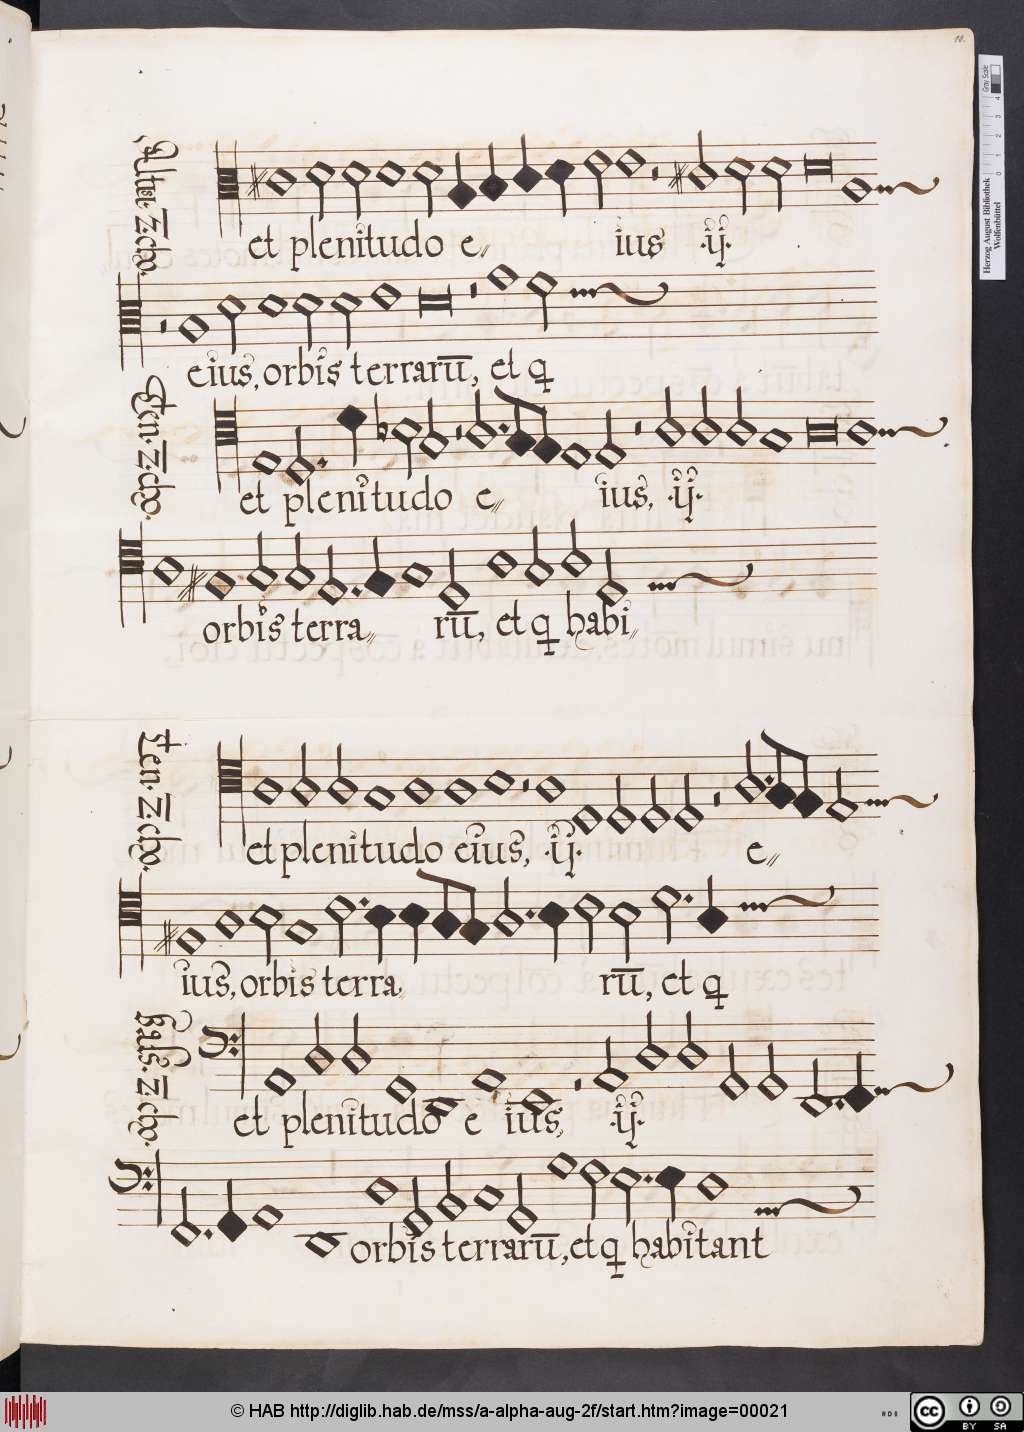 10.
Alter. 2. cho.
et plenitudo e〃 ius .ij.
eius, orbis terrarū, et q
Ten. 2. cho.
et plenitudo e〃 ius, .ij.
orbis terra〃 rū, et q habi〃
Ten. 2. cho.
et plenitudo eius, .ij. e〃
ius, orbis terra, rū, et q
Bass. 2. cho.
et plenitudo e ius, .ij.
orbis terrarū, et q habitant
Gray Scale
0 1 2 3 4
Herzog August Bibliothek
Wolfenbüttel
© HAB http://diglib.hab.de/mss/a-alpha-aug-2f/start.htm?image=00021
cc BY SA